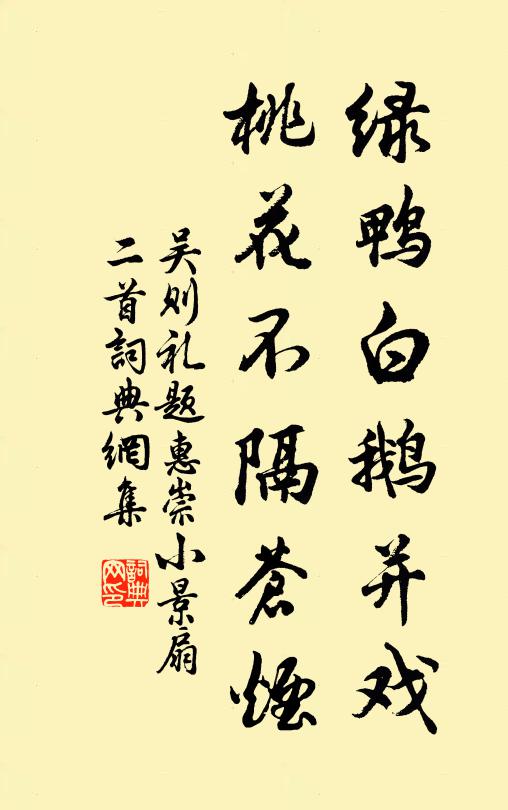 绿鸭白鹅并戏
桃花不隔苍烟
吴则礼题惠崇小景扇
二首词典網集
詞典网印